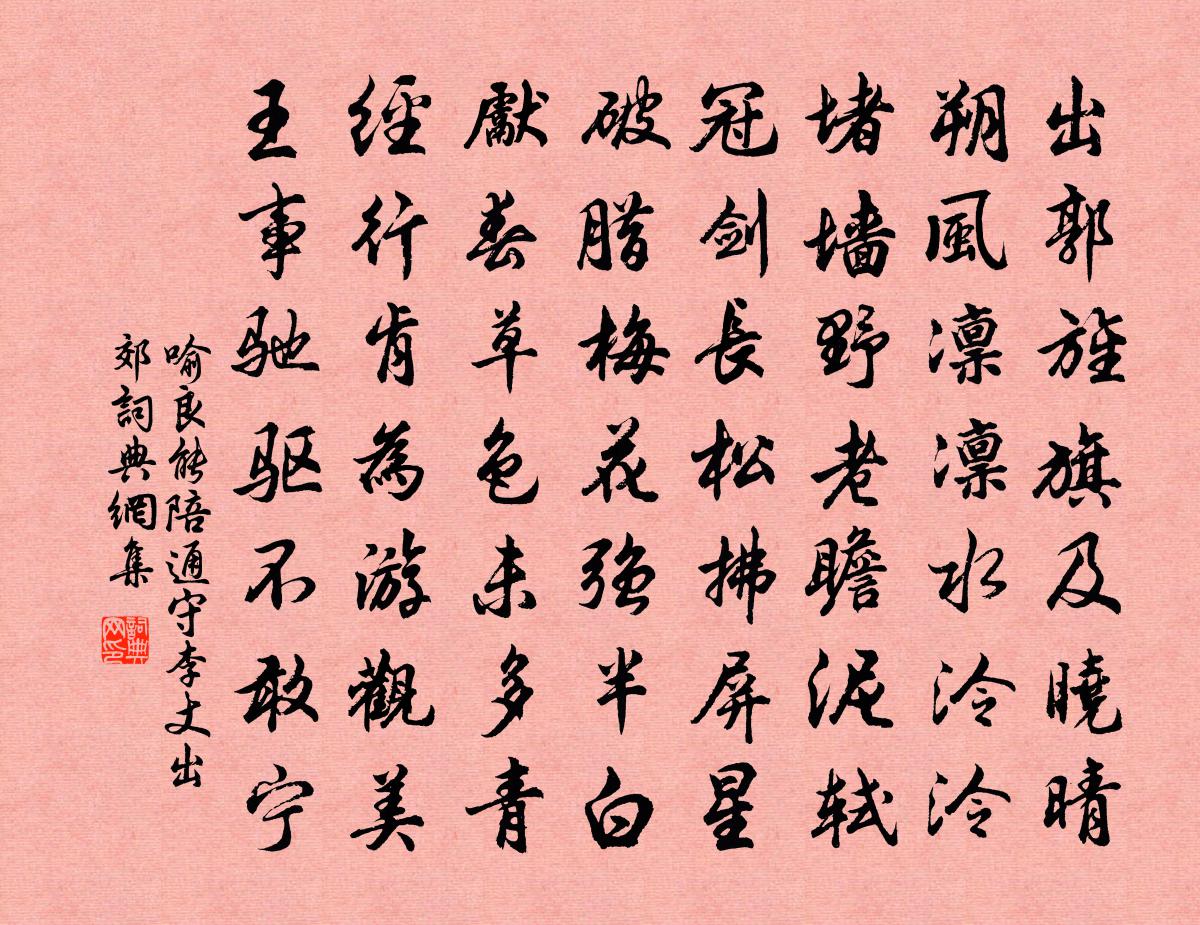 出郭旌旗及曉晴
朔風凛凛水泠泠
堵墻野老瞻泥軾
冠劍長松拂屏星
破腊梅花强半白
獻春草色未多青
經行肯為游觀美
王事驰驱不敢宁
喻良能陪通守李丈出
郊詞典網集
詞典网印